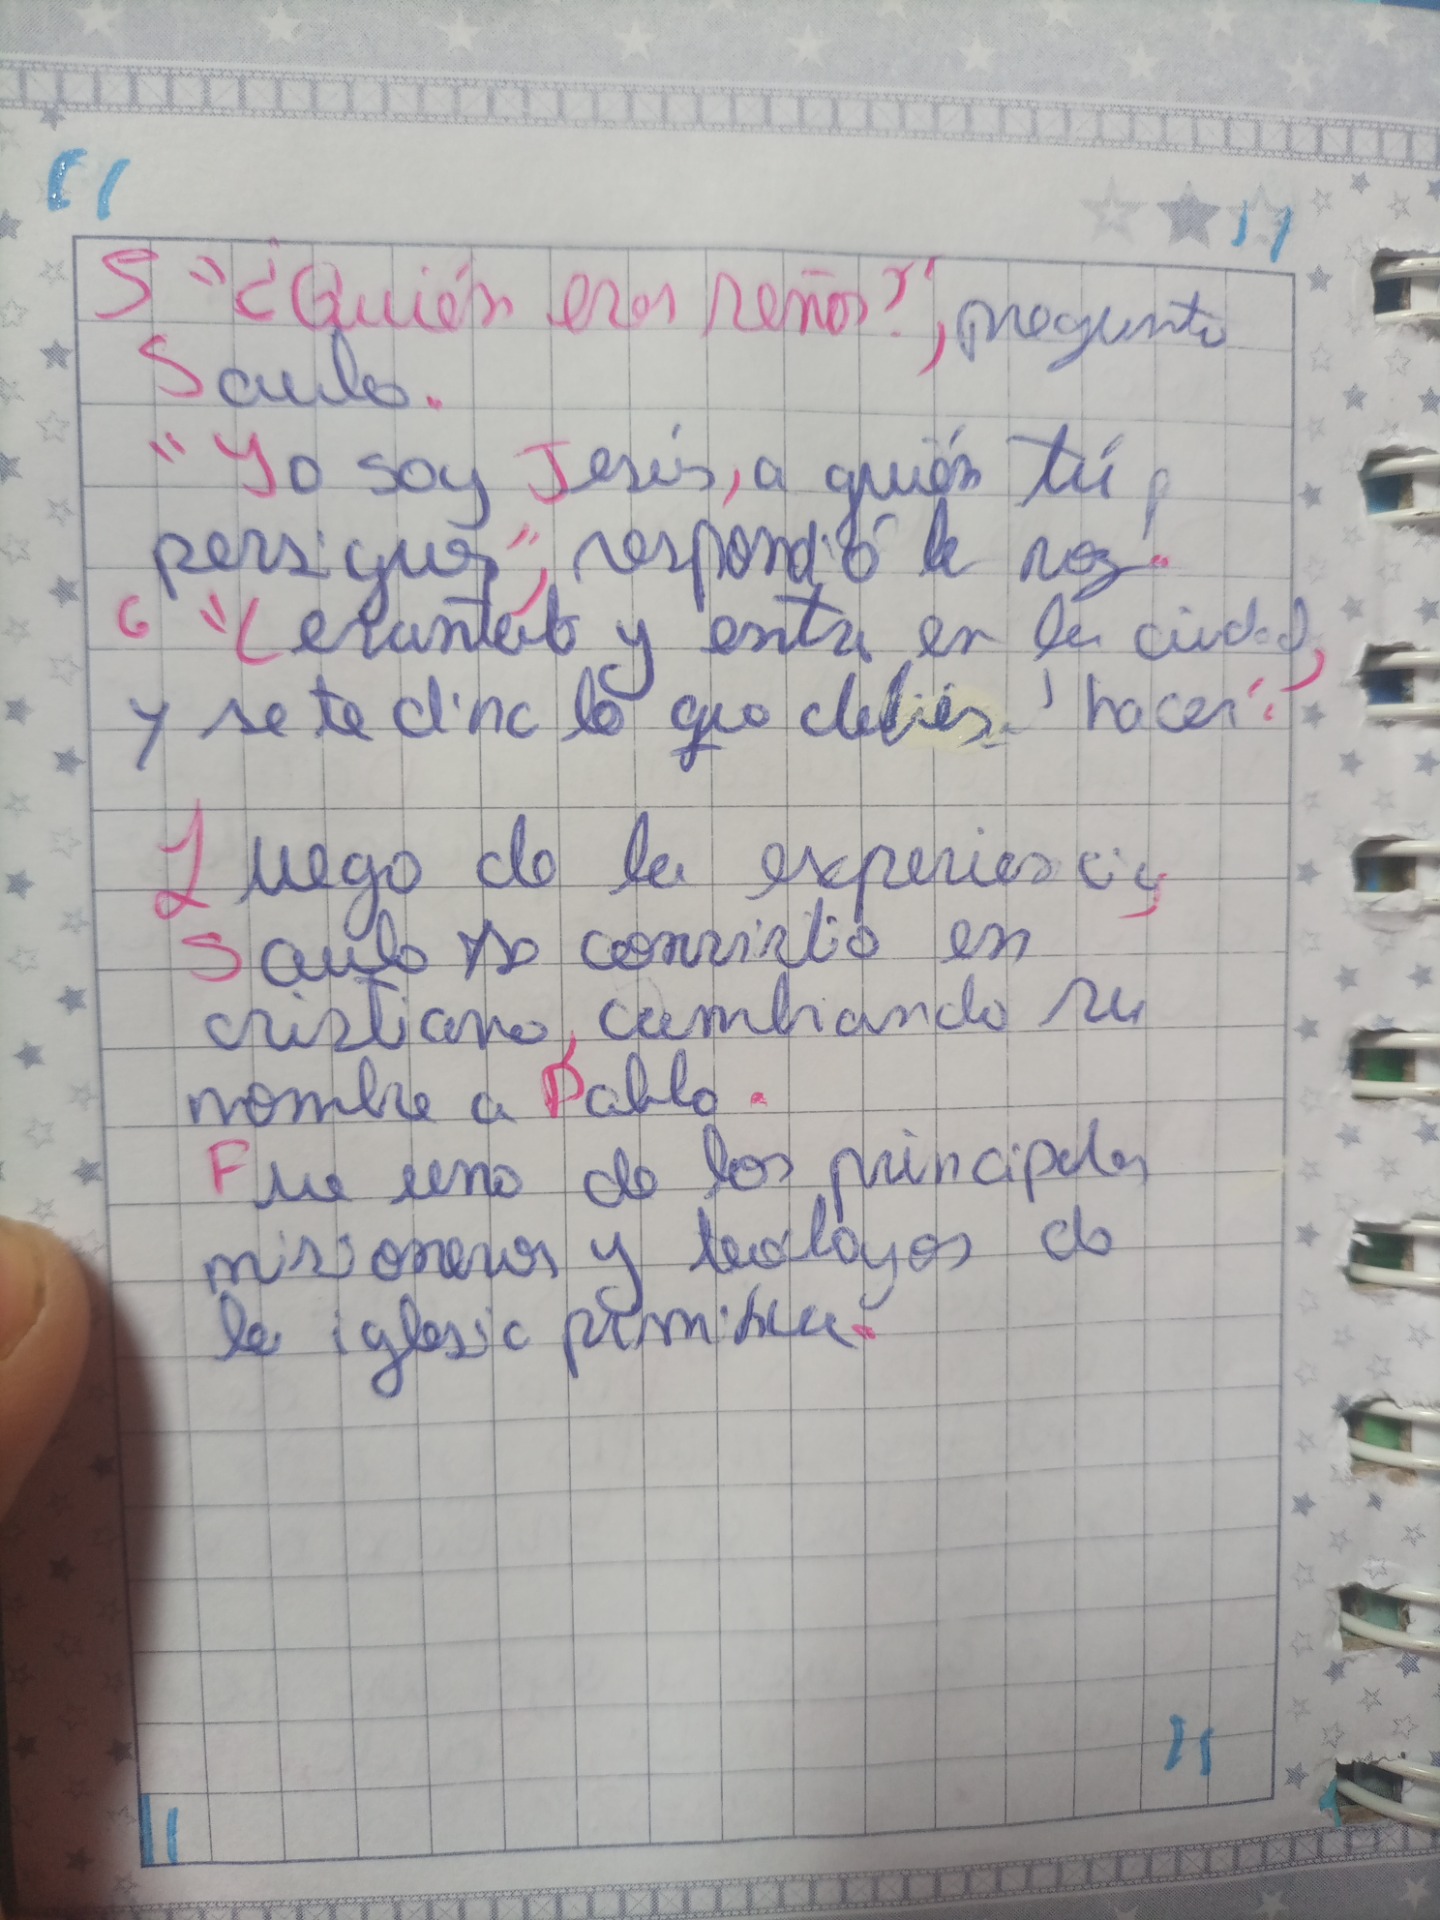 5 "¿Quién eres señor?", pregunto
Saulo.
"Yo soy Jesús, a quién tú p
persigues", respondió la voz.
6 "Levantate y entra en la ciudad,
y se te dira lo que debes hacer".
Luego de la experiencia,
Saulo se convirtio en
cristiano, cambiando su
nombre a Pablo.
Fue uno de los principales
misioneros y teologos de
la iglesia primitiva.